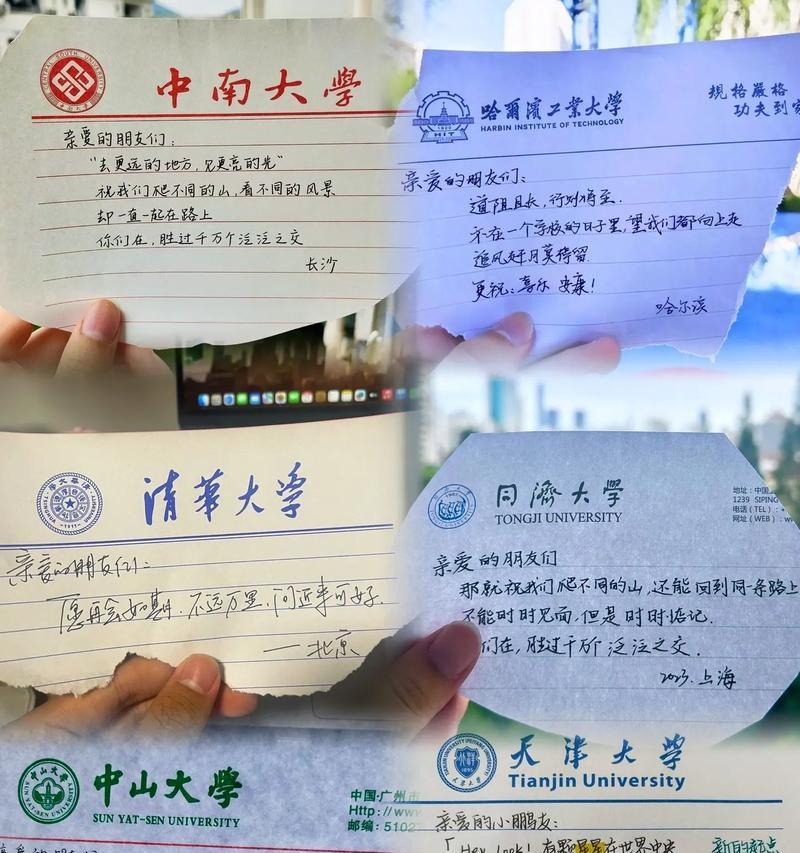 中南大學
CENTRAL SOUTH UNIVERSITY
亲爱的朋友们：
“去更远的地方，见更亮的光”
祝我们爬不同的山，看不同的风景
却一直一起在路上
你们在，胜过千万个泛泛之交
长沙
哈爾濱工業大學
HARBIN INSTITUTE OF TECHNOLOGY
HIT
規格嚴格
功夫到家
亲爱的朋友们：
道阻且长，行则将至.
不在一个学校的日子里，望我们都向上走
追风好月莫停留.
更祝：喜乐 安康！
哈尔滨
清華大学
-1911-
亲爱的朋友们：
愿再会如期，不远万里，问近来可好.
——北京
同濟大学
TONGJI UNIVERSITY
地址：中国
1239 SIPING
电话（TEL）：+
网址（WEB）：w
亲爱的朋友们
那就祝我们爬不同的山，还能回到同一条路上
不能时时见面，但是时时惦记.
们在，胜过千万个泛泛之交.
2023.上海
中山大學
SUN YAT-SEN UNIVERSITY
中国·广州市
Http://www
邮编：5102
亲爱的朋友们
天津大学
Tianjin University
1895
亲爱的小鹏友：
「Hey Look! 有颗星星在世界中央
新的起点